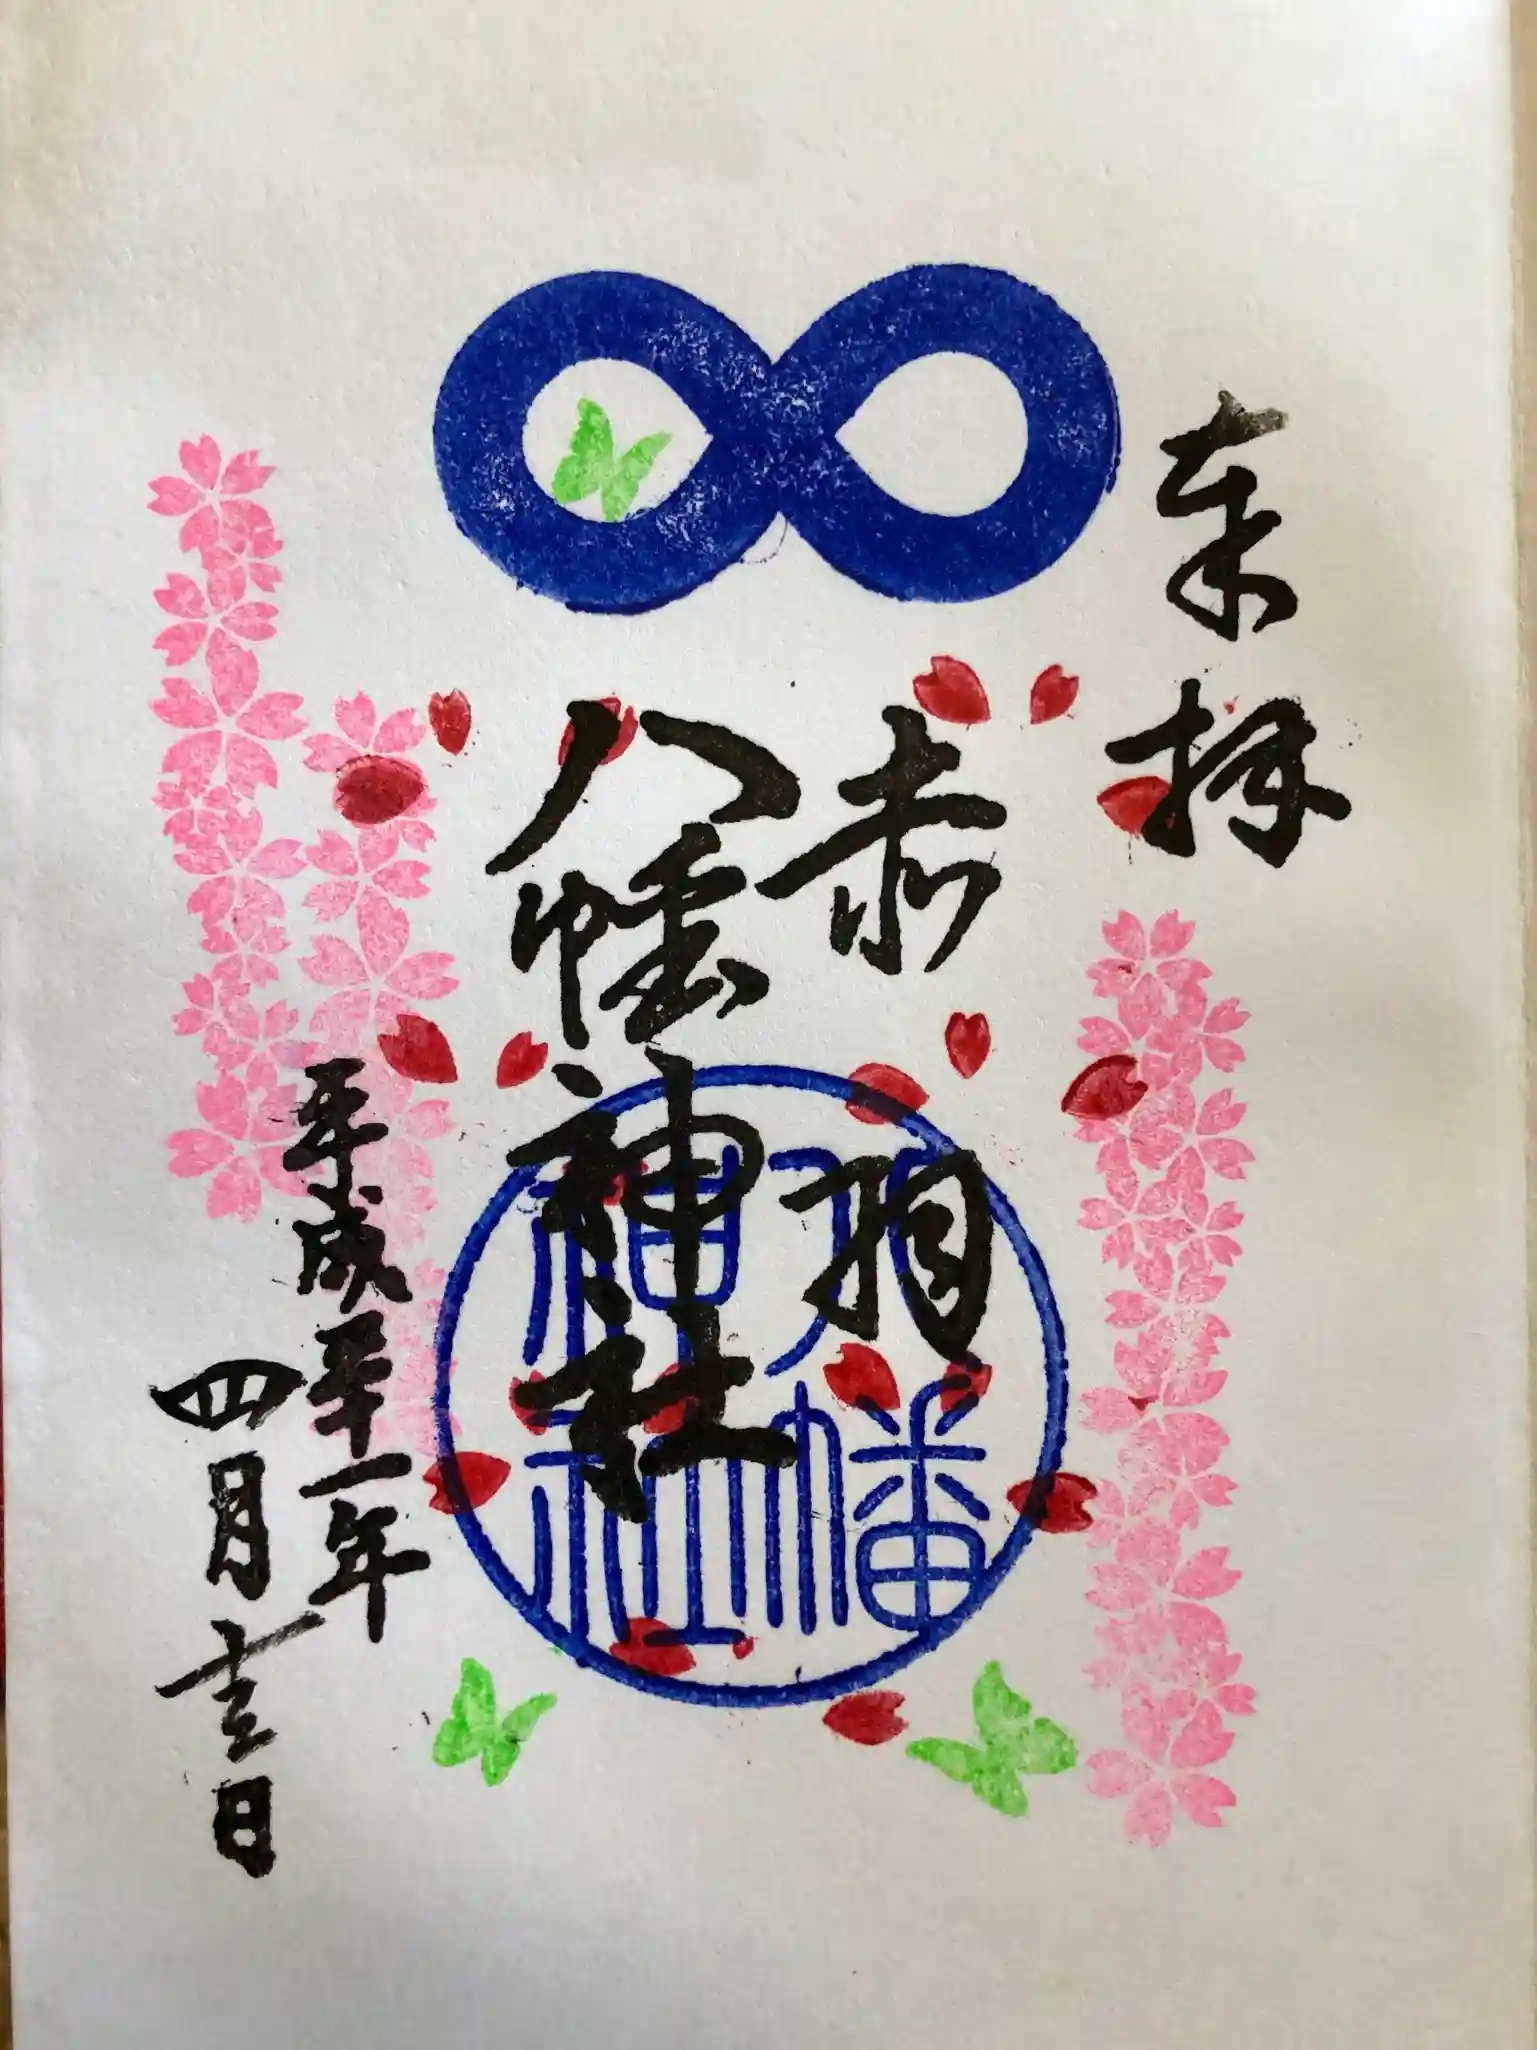 奉拝
赤羽
八幡神社
平成三十一年
四月十三日
八幡
神社